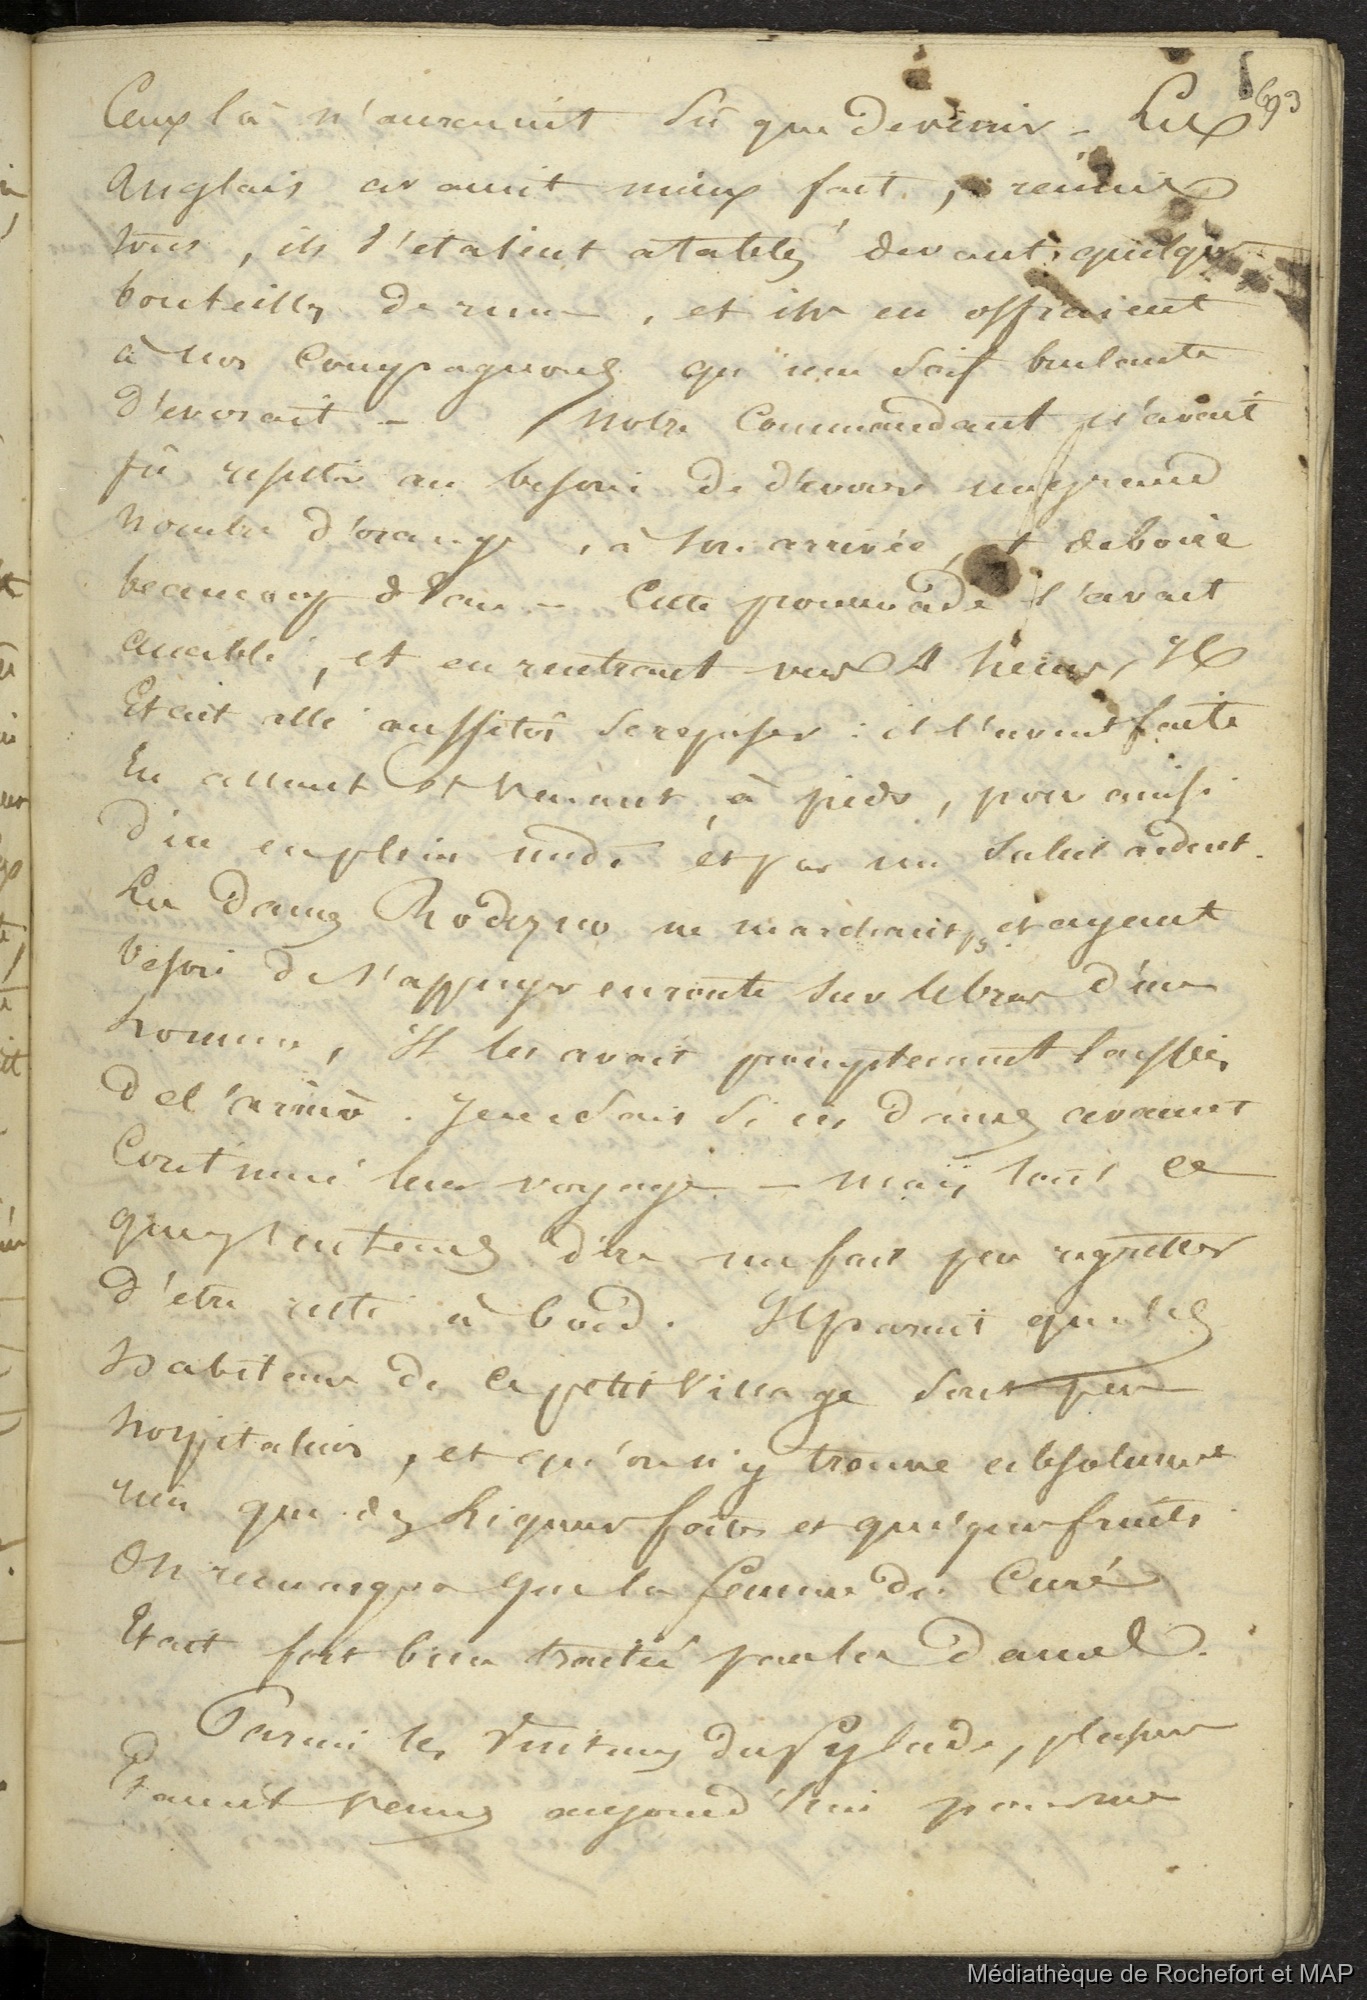 693
Ceux là n'auraient sû que devenir - Les
Anglais avaient mieux fait, réunis
tous, ils s'étaient attablés devant quelques
bouteilles de rum, et ils en offraient
à nos Compagnons qu'une soif brulante
d'evorait - Notre Commandant n'avait
pû resister au besoin de dévorer un grand
nombre d'orange, à son arrivée, et de boire
beaucoup d'eau - Cette promenade l'avait
accablé, et en rentrant vers 4 heures, Il
Etait allé aussitôt se reposer : il l'avait faite
En allant et venant, à pieds, pour ainsi
dire en plein midi et par un Soleil ardent.
Les Dames Rodezno ne marchant pas, et ayant
besoin de s'appuyer en route sur le bras d'un
homme, Il les avait promptement laissées
de l'arrière. Je ne sais si ces dames avaient
Continué leur voyage - mais tout ce
que j'entends dire me fait peu regretter
d'etre resté à bord. Il parait que les
habitans de ce petit Village sont peu
hospitaliers, et qu'on n'y trouve absolument
rien que des Liqueurs fortes et quelques fruits
On remarqua que la femme du Curé
Etait fort bien traitée par les Dames.
Parmi les Visiteurs du Pylade, plusieurs
Etaient venus aujourd'hui pour me
Médiathèque de Rochefort et MAP